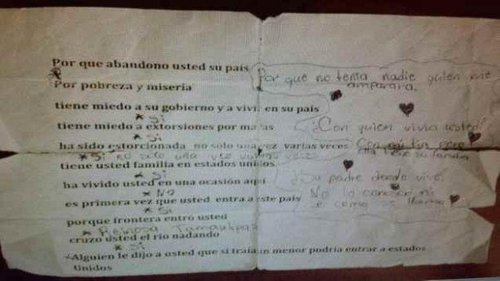 Por que abandono usted su país
Por que no tenia nadie quien me
amparara.
Por pobreza y miseria
tiene miedo a su gobierno y a vivir en su país
Si
tiene miedo a extorsiones por maras
Si
¿Con quien vivia usted?
ha sido estorcionada no solo una vez varias veces
Si no solo una vez varias veces
tiene usted familia en estados unidos
Si
¿Su padre donde vive?
No lo conosco ni
se como llama
ha vivido usted en una ocasión aqui
No
es primera vez que usted entra a este país
Si
porque frontera entró usted
Reinosa Tamaulipas
cruzo usted el rio nadando
Si
Alguien le dijo a usted que si traia un menor podria entrar a estados
Unidos